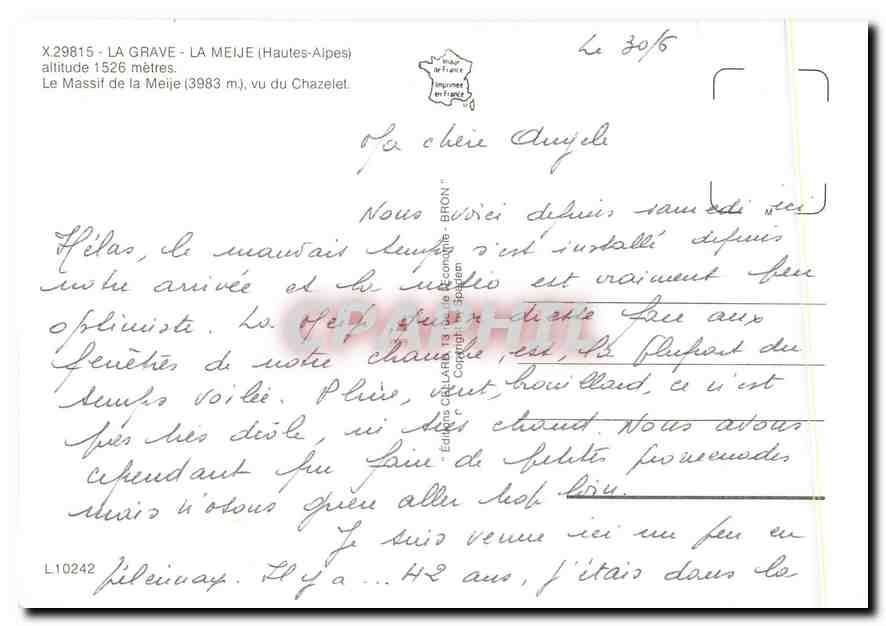 X.29815 - LA GRAVE - LA MEIJE (Hautes-Alpes)
altitude 1526 mètres.
Le Massif de la Meije (3983 m.), vu du Chazelet.
Image
de France
Imprimée
en France
Le 30/6
Ma chère Angèle
Nous voici depuis samedi ici
M
Hélas, le mauvais temps s'est installé depuis
notre arrivée et la météo est vraiment peu
optimiste. La Meije qui se dresse face aux
fenêtres de notre chambre, est, la plupart du
temps voilée. Pluie, vent, brouillard, ce n'est
pas très drôle, ni très chaud. Nous avons
cependant pu faire de petites promenades
mais n'osons guère aller trop loin.
Je suis venue ici un peu en
pélerinage. Il y a ... 42 ans, j'étais dans la
L10242
CPAPHIL
Copyright by Spadem